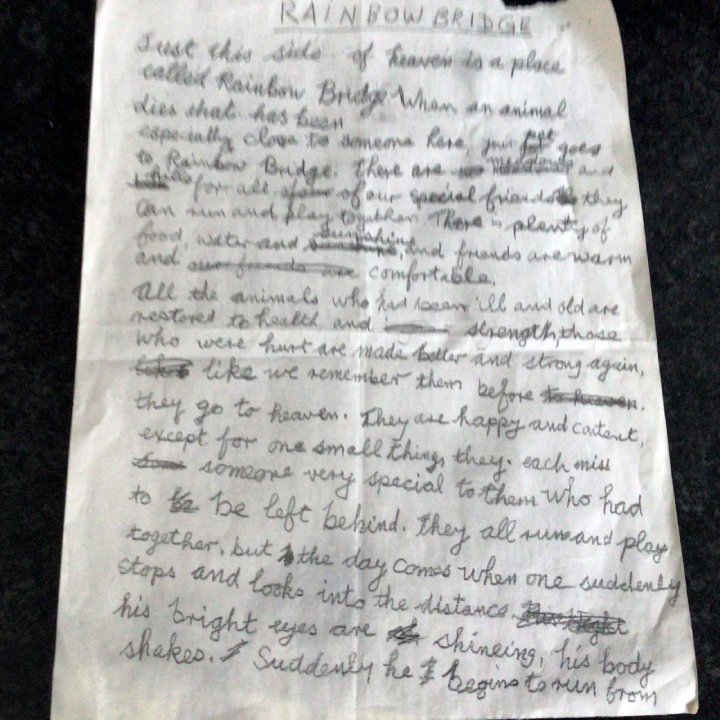 RAINBOW BRIDGE
Just this side of heaven is a place
called Rainbow Bridge. When an animal
dies that has been
especially close to someone here, your pet goes
to Rainbow Bridge. There are meadows and
hills for all of our special friends they
can run and play together. There is plenty of
food, water and sunshine, and friends are warm
and our friends are comfortable.
All the animals who had been ill and old are
restored to health and strength, those
who were hurt are made better and strong again,
like we remember them before to heaven.
they go to heaven. They are happy and content,
except for one small thing, they. each miss
someone very special to them who had
to be left behind. They all run and play
together, but the day comes when one suddenly
stops and looks into the distance.
his bright eyes are shineing, his body
shakes. Suddenly he begins to run from